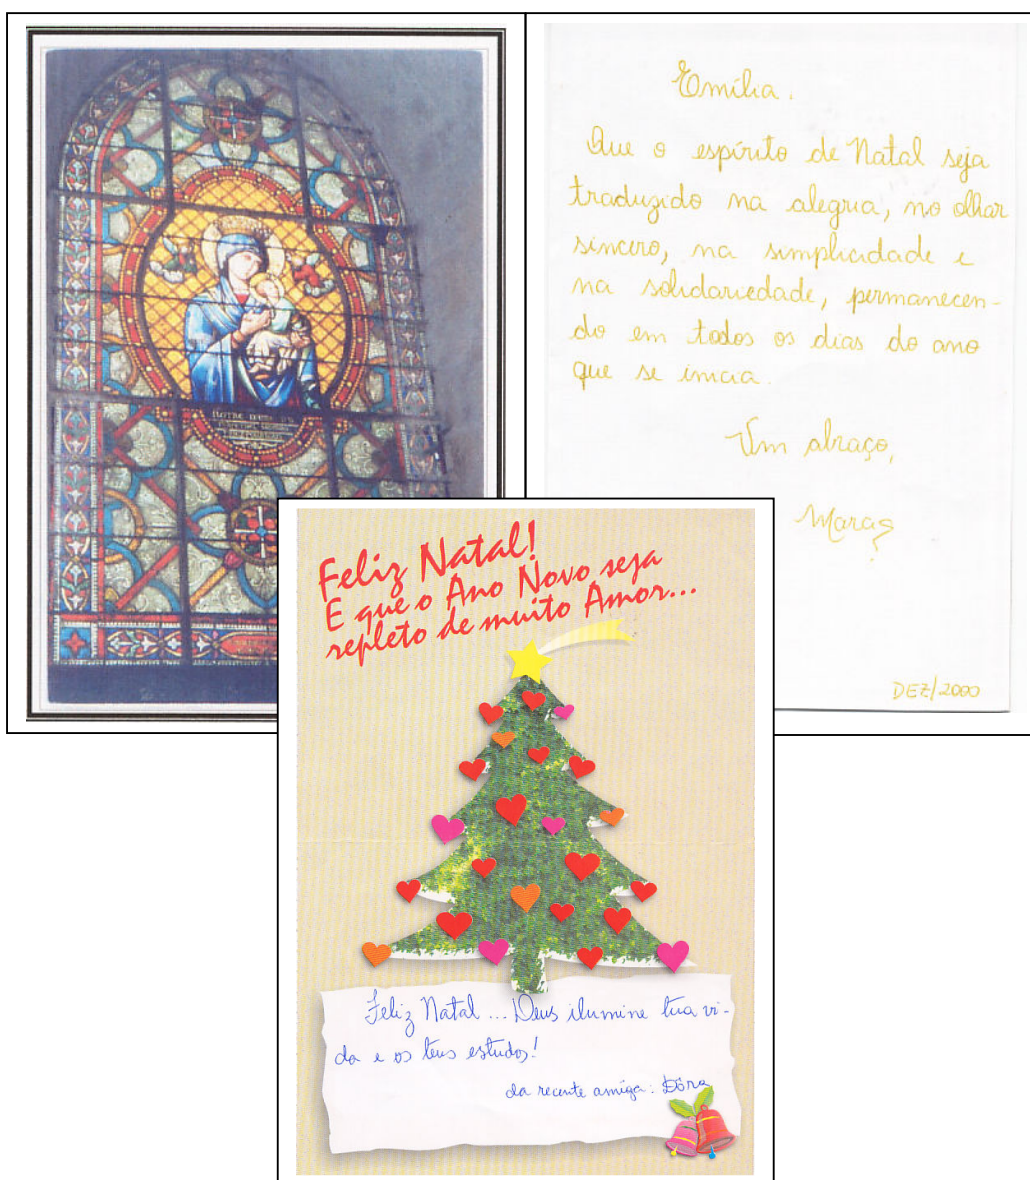 NOTRE DAME DU
PERPETUEL
Emília.
Que o espírito de Natal seja
traduzido na alegria, no olhar
sincero, na simplicidade e
na solidariedade, permanecen-
do em todos os dias do ano
que se inicia.
Um abraço,
Mara
DEZ/2000
Feliz Natal!
E que o Ano Novo seja
repleto de muito Amor...
Feliz Natal... Deus ilumine tua vi-
da e os teus estudos!
da recente amiga: Dôra